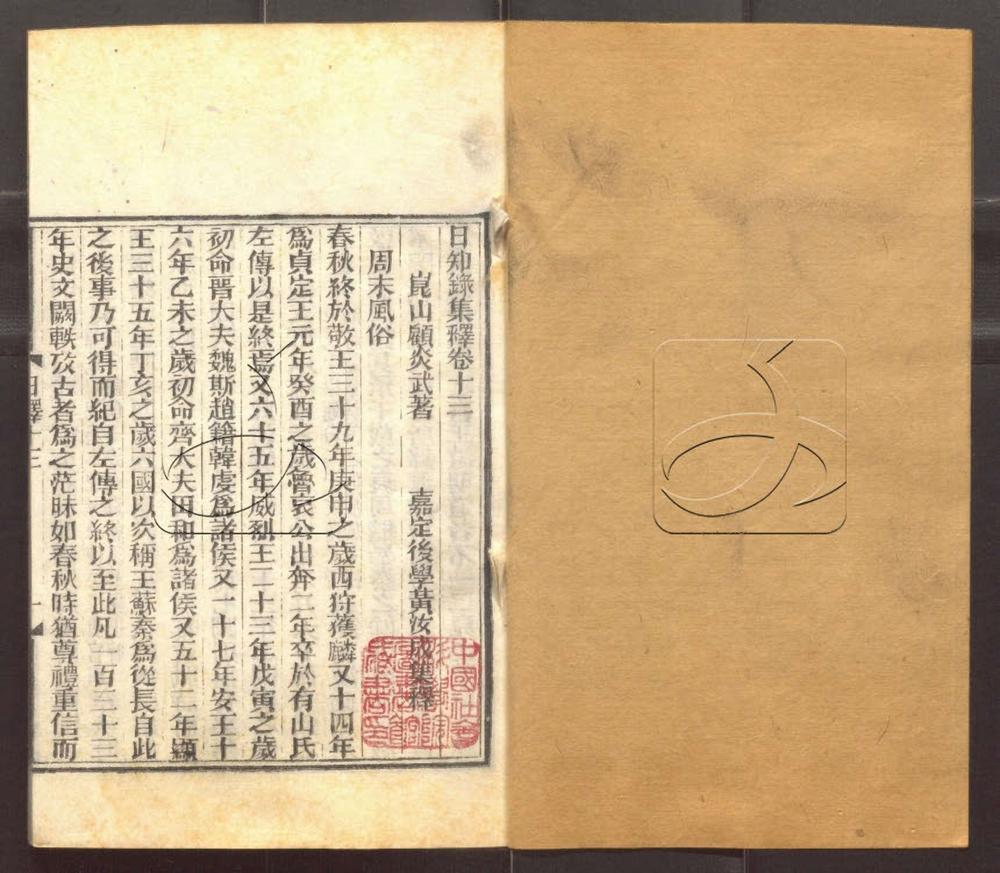 日知錄集釋卷十三
崑山顧炎武著　嘉定後學黃汝成集釋
周末風俗
春秋終於敬王三十九年庚申之歲西狩獲麟又十四年
爲貞定王元年癸酉之歲魯哀公出奔二年卒於有山氏
左傳以是終焉又六十五年威烈王二十三年戊寅之歲
初命晉大夫魏斯趙籍韓虔爲諸侯又一十七年安王十
六年乙未之歲初命齊大夫田和爲諸侯又五十二年顯
王三十五年丁亥之歲六國以次稱王蘇秦爲從長自此
之後事乃可得而紀自左傳之終以至此凡一百三十三
年史文闕軼攷古者爲之茫昧如春秋時猶尊禮重信而
日釋十三
一
中國社會